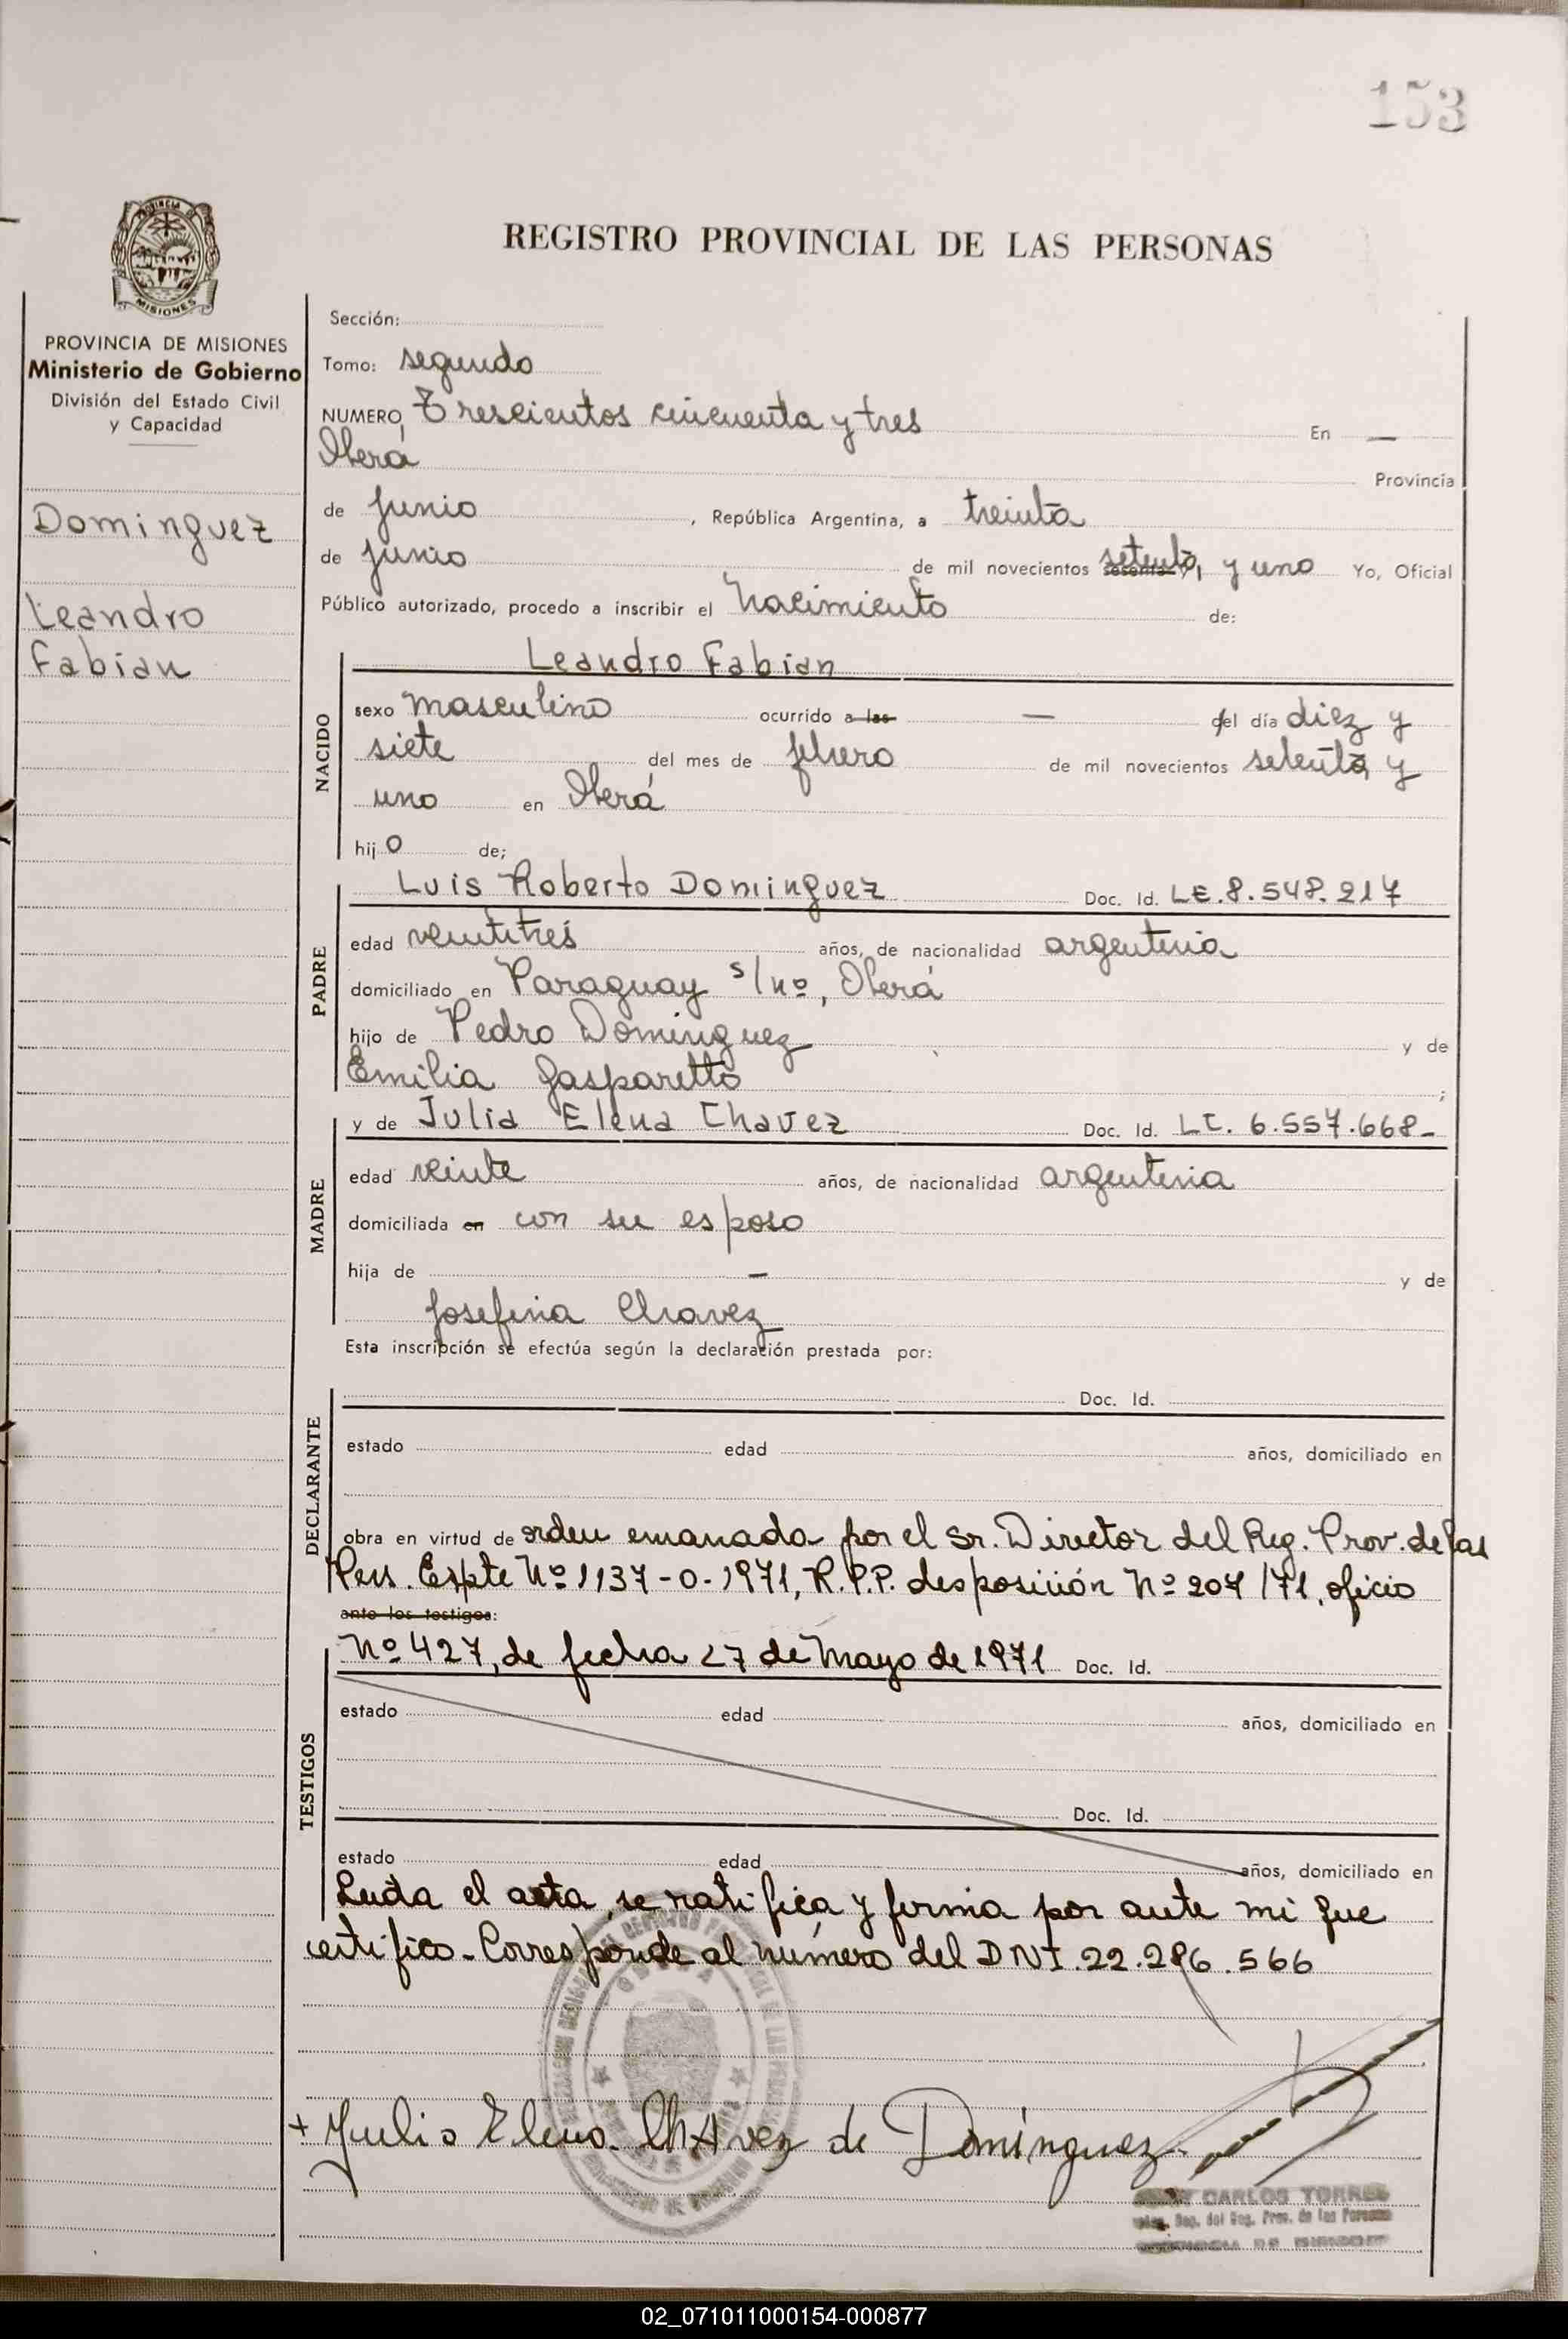 153
REGISTRO PROVINCIAL DE LAS PERSONAS
PROVINCIA DE MISIONES
Ministerio de Gobierno
División del Estado Civil
y Capacidad
Dominguez
Leandro
Fabian
Sección:
Tomo: segundo
NUMERO Trescientos cincuenta y tres En —
Oberá Provincia
de junio, República Argentina, a treinta
de junio de mil novecientos setenta, y uno Yo, Oficial
Público autorizado, procedo a inscribir el Nacimiento de:
Leandro Fabian
NACIDO
sexo masculino ocurrido a las — del día diez y
siete del mes de febrero de mil novecientos setenta y
uno en Oberá
hijo de;
PADRE
Luis Roberto Dominguez Doc. Id. LE. 8.548.217
edad veintitres años, de nacionalidad argentina
domiciliado en Paraguay s/nº, Oberá
hijo de Pedro Dominguez y de
Emilia Gasparetto ;
MADRE
y de Julia Elena Chavez Doc. Id. LC. 6.557.668-
edad veinte años, de nacionalidad argentina
domiciliada en con su esposo
hija de — y de
Josefina Chavez
Esta inscripción se efectúa según la declaración prestada por:
DECLARANTE
Doc. Id.
estado edad años, domiciliado en
obra en virtud de orden emanada por el Sr. Director del Reg. Prov. de las
Pers. Expte Nº 1137-0-1971, R.P.P. desposición Nº 207/71, oficio
ante los testigos:
Nº 427, de fecha 27 de Mayo de 1971 Doc. Id.
TESTIGOS
estado edad años, domiciliado en
Doc. Id.
estado edad años, domiciliado en
Leida el acta, se ratifica y firma por ante mi que
certifico - Corresponde al número del DNI. 22.286.566
+ Julia Elena Chavez de Domínguez.
CARLOS TORRES
del Reg. Prov. de las Personas
02_071011000154-000877